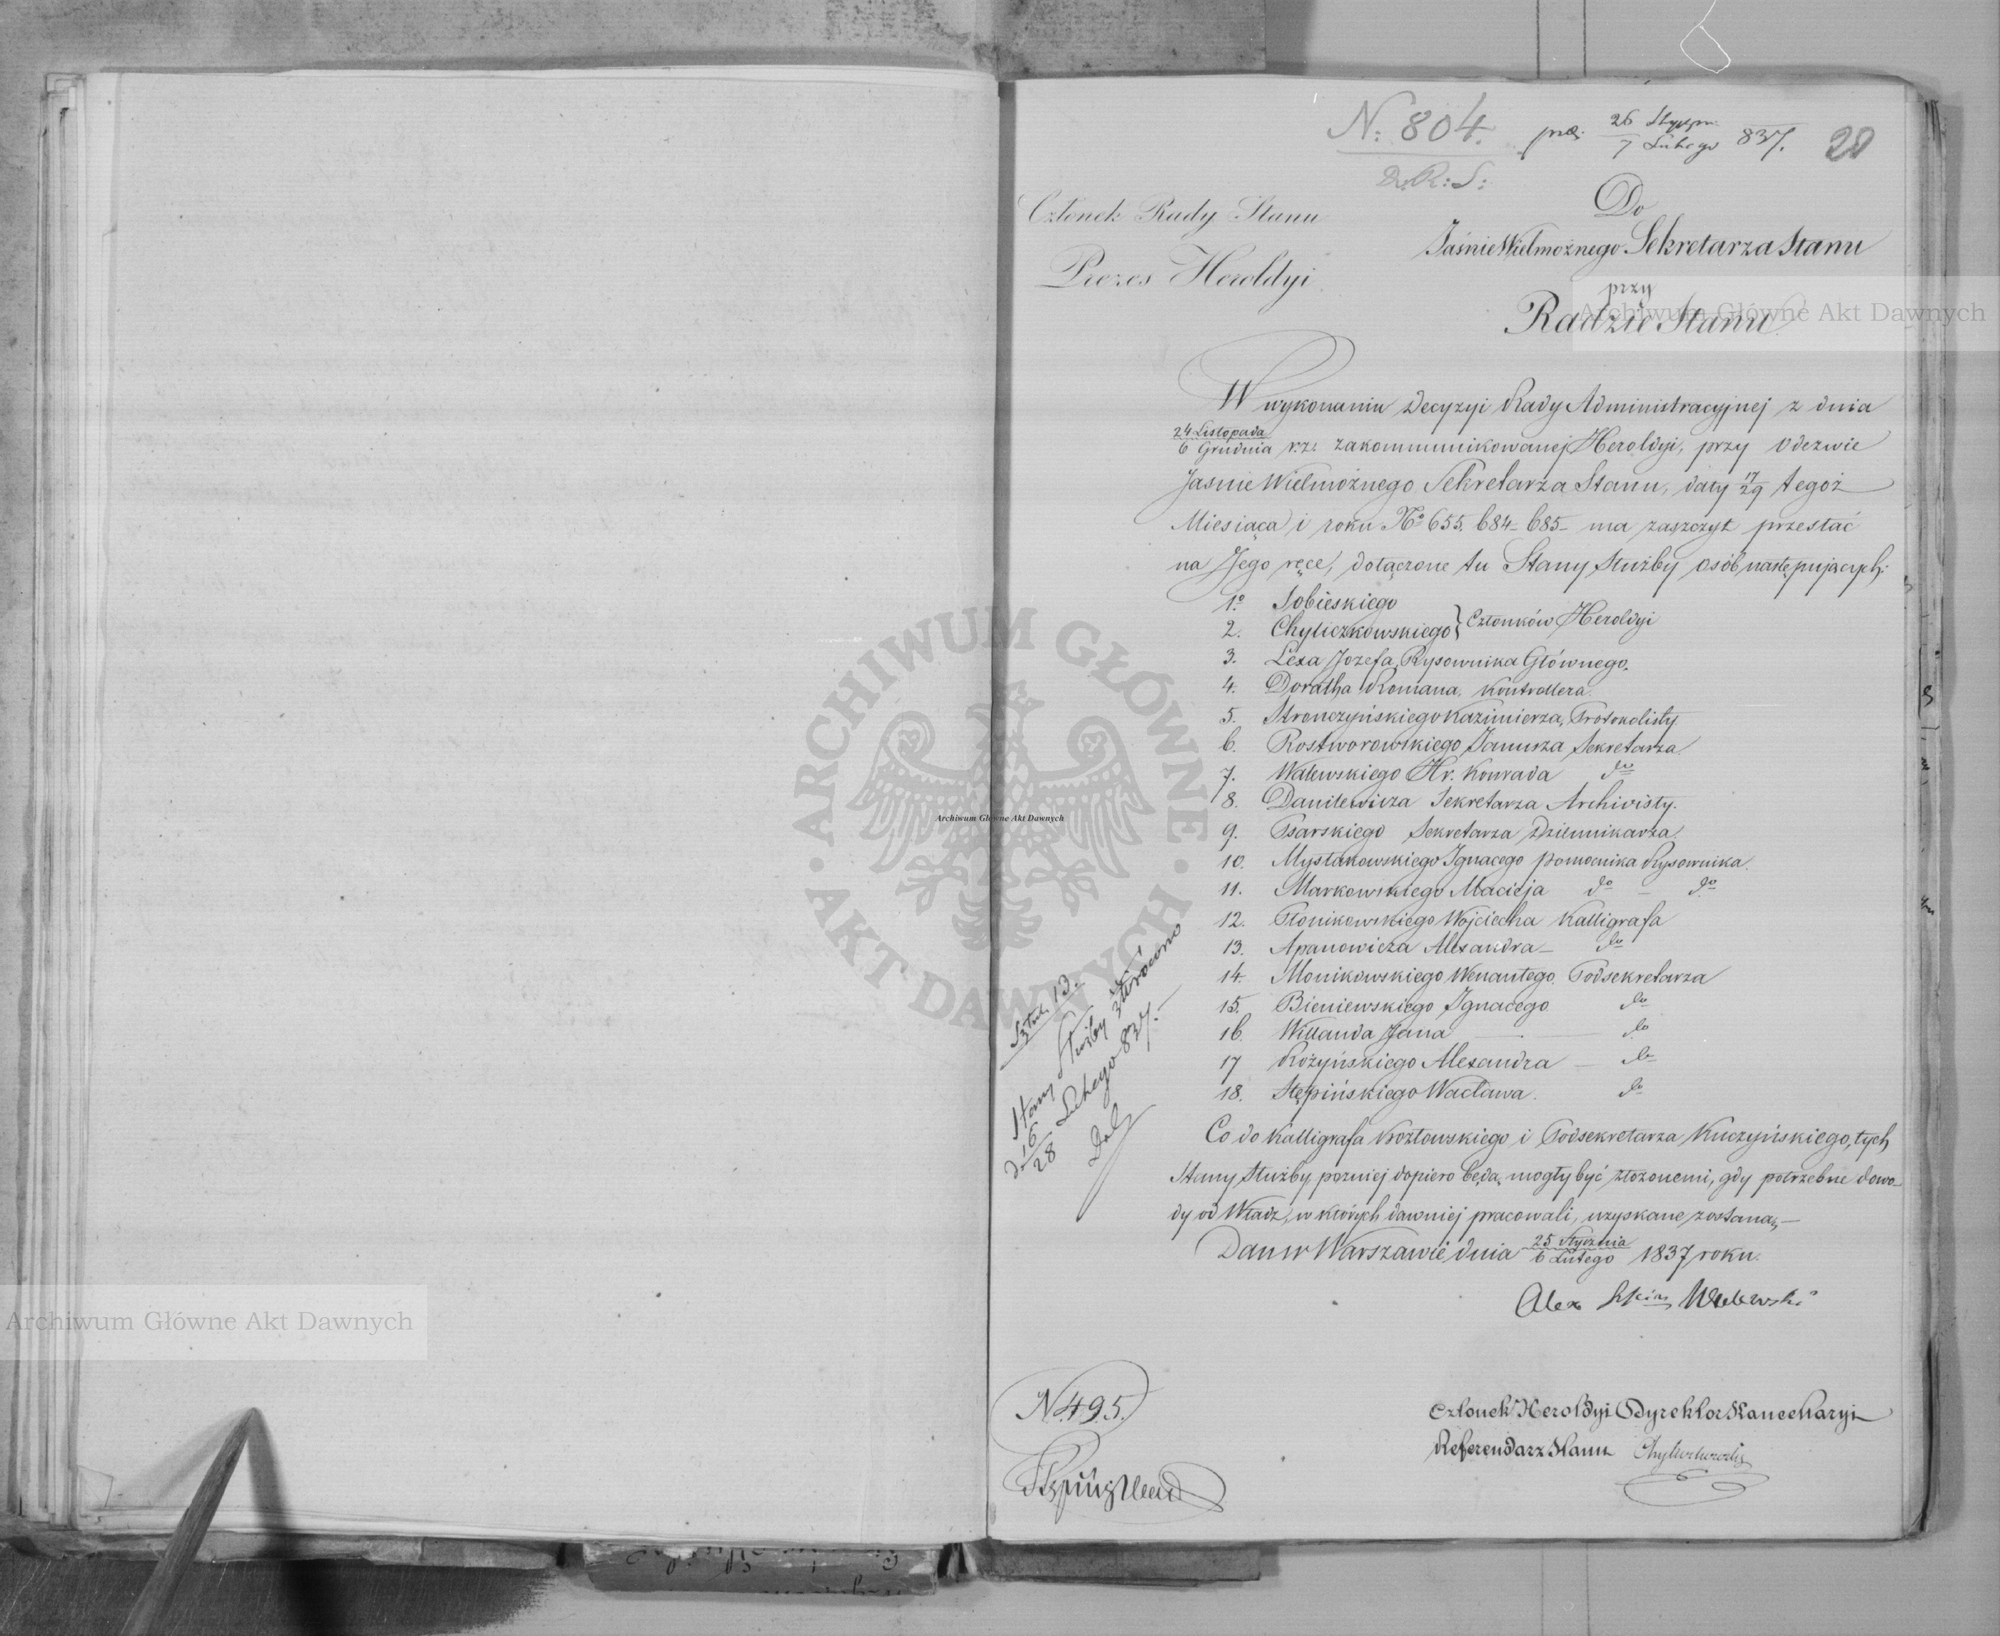 N: 804.
D.R.S:
prez. 26 Stycznia
7 Lutego 837.
20
Członek Rady Stanu
Prezes Heroldyi
Do
Jaśnie Wielmożnego Sekretarza Stanu
przy
Radzie Stanu
W wykonaniu Decyzyi Rady Administracyjnej z dnia
24 Listopada
6 Grudnia r: z: zakommunikowanej Heroldyi, przy Odezwie
Jaśnie Wielmożnego Sekretarza Stanu, daty 17/29 tegoż
Miesiąca i roku No 655. 684 – 685 – ma zaszczyt przesłać
na Jego ręce, dołączone tu Stany Służby osób następujących:
1o Sobieskiego
2. Chyliczkowskiego } Członków Heroldyi
3. Lexa Józefa, Rysownika Głównego.
4. Doratha Romana, Kontrollera
5. Stronczyńskiego Kazimierza, Protokolisty
6. Rostworowskiego Januarza Sekretarza
7. Walewskiego Hr. Konrada do
8. Danilewicza Sekretarza Archivisty.
9. Psarskiego Sekretarza Dziennikarza
10. Mysłakowskiego Ignacego pomocnika Rysownika.
11. Markowskiego Macieja do – do
12. Płonikowskiego Wojciecha Kalligrafa
13. Apanowicza Alexandra – do
14. Monikowskiego Wenantego Podsekretarza
15. Bieniewskiego Ignacego do
16. Willanda Jana – do
17 Rożyńskiego Alexandra – do
18. Stępińskiego Wacława. do
Co do Kalligrafa Kozłowskiego i Podsekretarza Kuczyńskiego, tych
Stany Służby pozniej dopiero będą mogły być złożonemi, gdy potrzebne dowo-
dy od Władz, w których dawniej pracowali, uzyskane zostaną, –
Dan w Warszawie dnia 25 Stycznia
6 Lutego 1837 roku.
Alex Walewski
Członek Heroldyi Dyrektor Kancellaryi
Referendarz Stanu
Sztuk 13.
Stany Służby zwrócono
d. 16/28 Lutego 837. –
N. 495.
Archiwum Główne Akt Dawnych
Archiwum Główne Akt Dawnych
Archiwum Główne Akt Dawnych
ARCHIWUM GŁÓWNE
AKT DAWNYCH